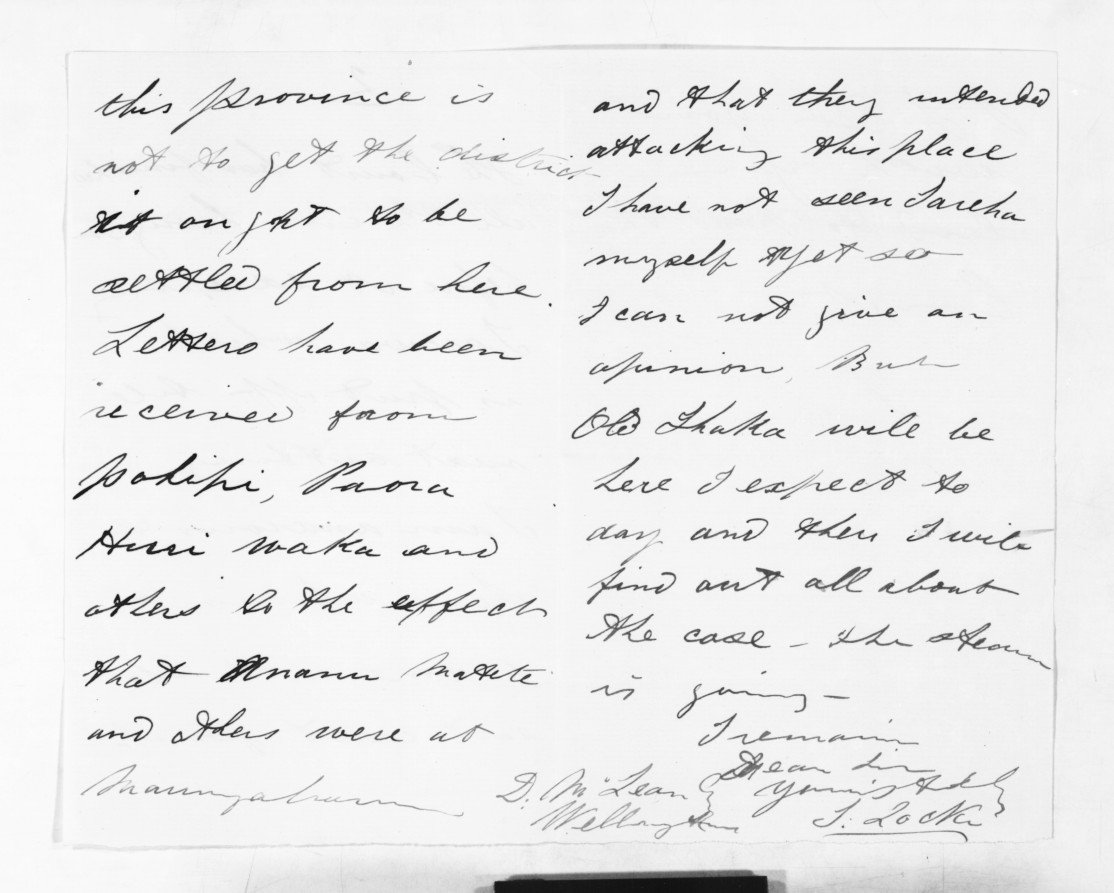 this province is
not to get the district
it ought to be
settled from here.
Letters have been
received from
pohipi, Paora
Huri waka and
others to the effect
that Anaru Matete
and others were at
Maungaharuru
and that they intended
attacking this place
I have not seen Tareha
myself yet so
I can not give an
opinion, But
Old Ihaka will be
here I expect to
day and then I will
find out all about
the case - the steamer
is going -
I remain
Dear Sir
Yours
S. Locke
D. McLean
Wellington